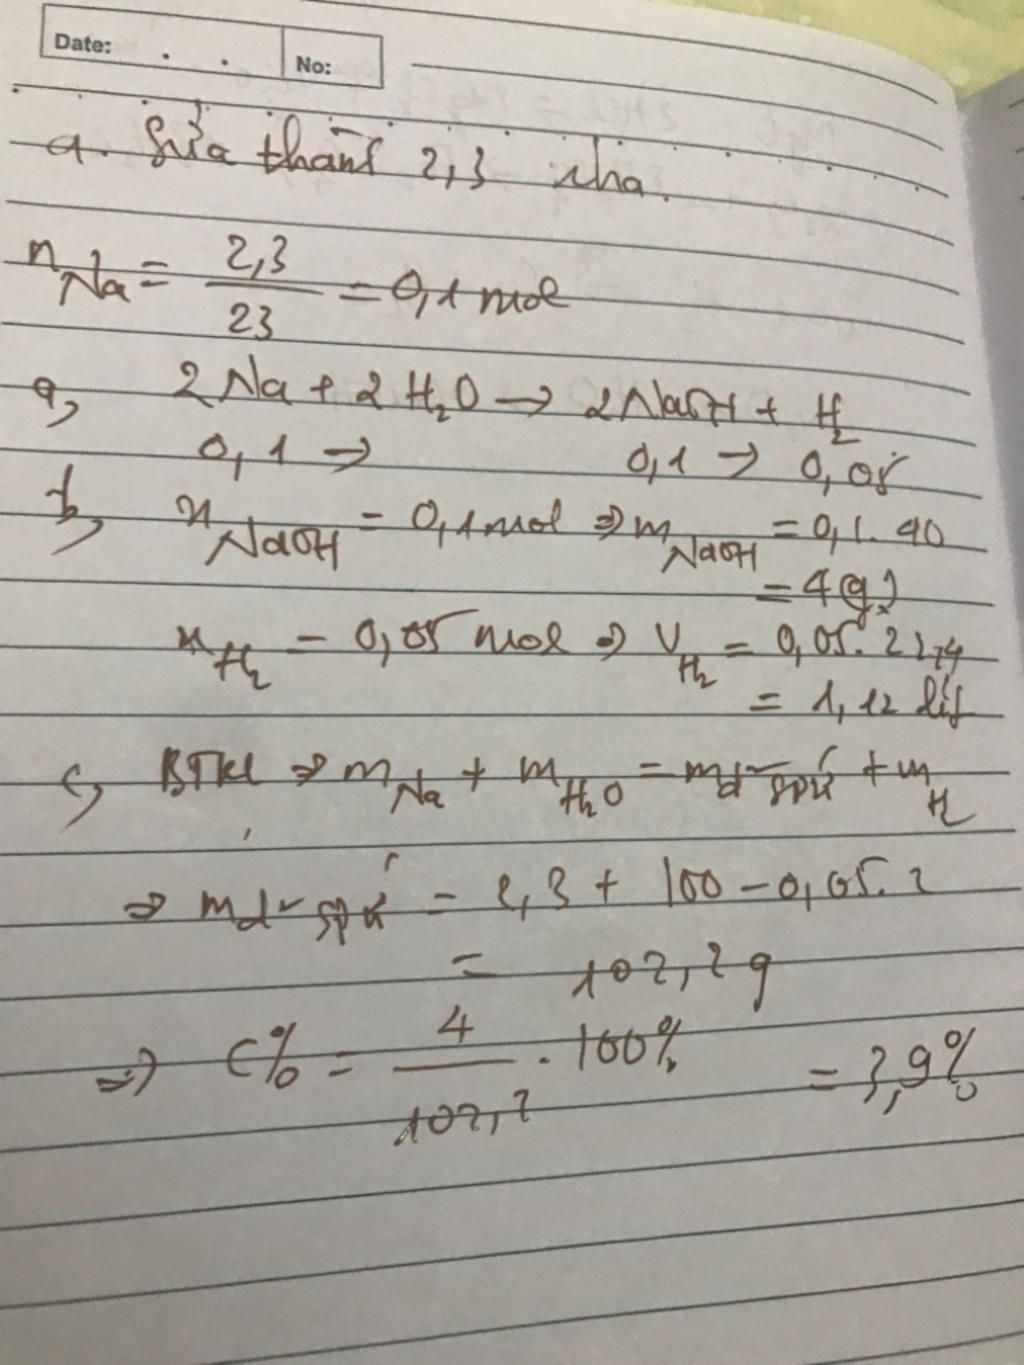 Date: . . No:
a. Sửa thành 2,3 nha.
n Na = 2,3 / 23 = 0,1 mol
a, 2Na + 2H₂O → 2NaOH + H₂
0,1 → 0,1 → 0,05
b, n NaOH = 0,1 mol ⇒ m NaOH = 0,1. 40
= 4(g)
n H₂ = 0,05 mol ⇒ V H₂ = 0,05. 22,4
= 1,12 lít
c, BTKL ⇒ m Na + m H₂O = m d² spứ + m H₂
⇒ m d² spứ = 2,3 + 100 - 0,05. 2
= 102,2 g
⇒ C% = 4 / 102,2 . 100% = 3,9%